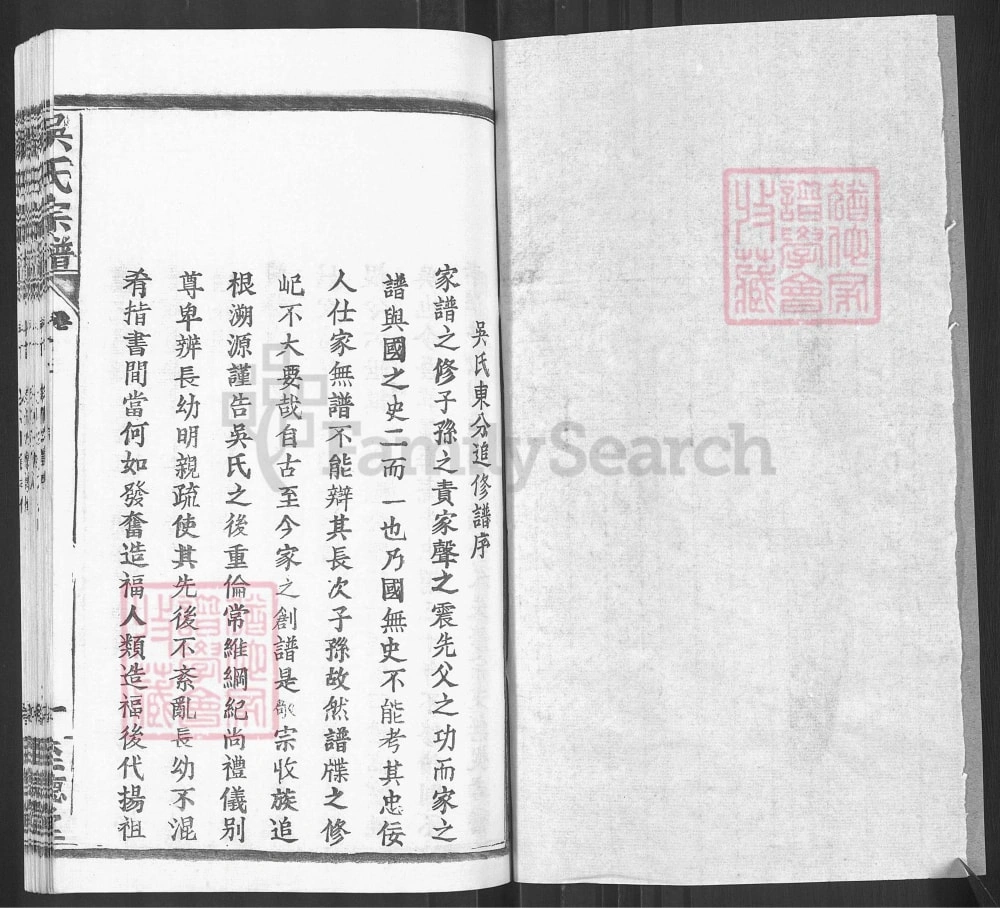 吳氏東分追修譜序
家譜之修子孫之責家聲之震先父之功而家之
譜與國之史二而一也乃國無史不能考其忠佞
人仕家無譜不能辯其長次子孫故然譜牒之修
屺不大要哉自古至今家之創譜是敬宗收族追
根溯源謹告吳氏之後重倫常維綱紀尚禮儀别
尊卑辨長幼明親疏使其先後不紊亂長幼不混
肴㨖書間當何如發奮造福人類造福後代揚祖
吳氏宗譜
卷
一
譜學會
收藏
FamilySearch